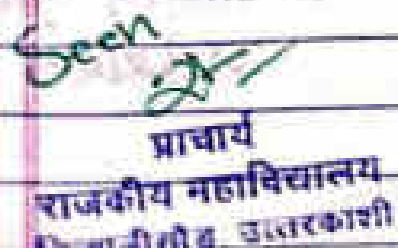 Seen
प्राचार्य
राजकीय महाविद्यालय
उत्तरकाशी